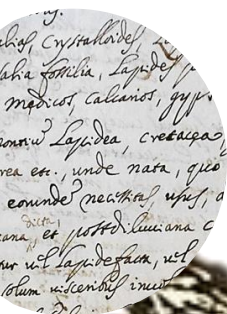 Crystalloides,
alia fossilia, Lapides
medicos, calcarios, gyps
montiu Lapidea, cretacea
rea etc., unde nata, quo
eorunde necessitas, usus, a
dicta
et postdiluviana c
tur vel Lapidefacta, vel
solum visceribus